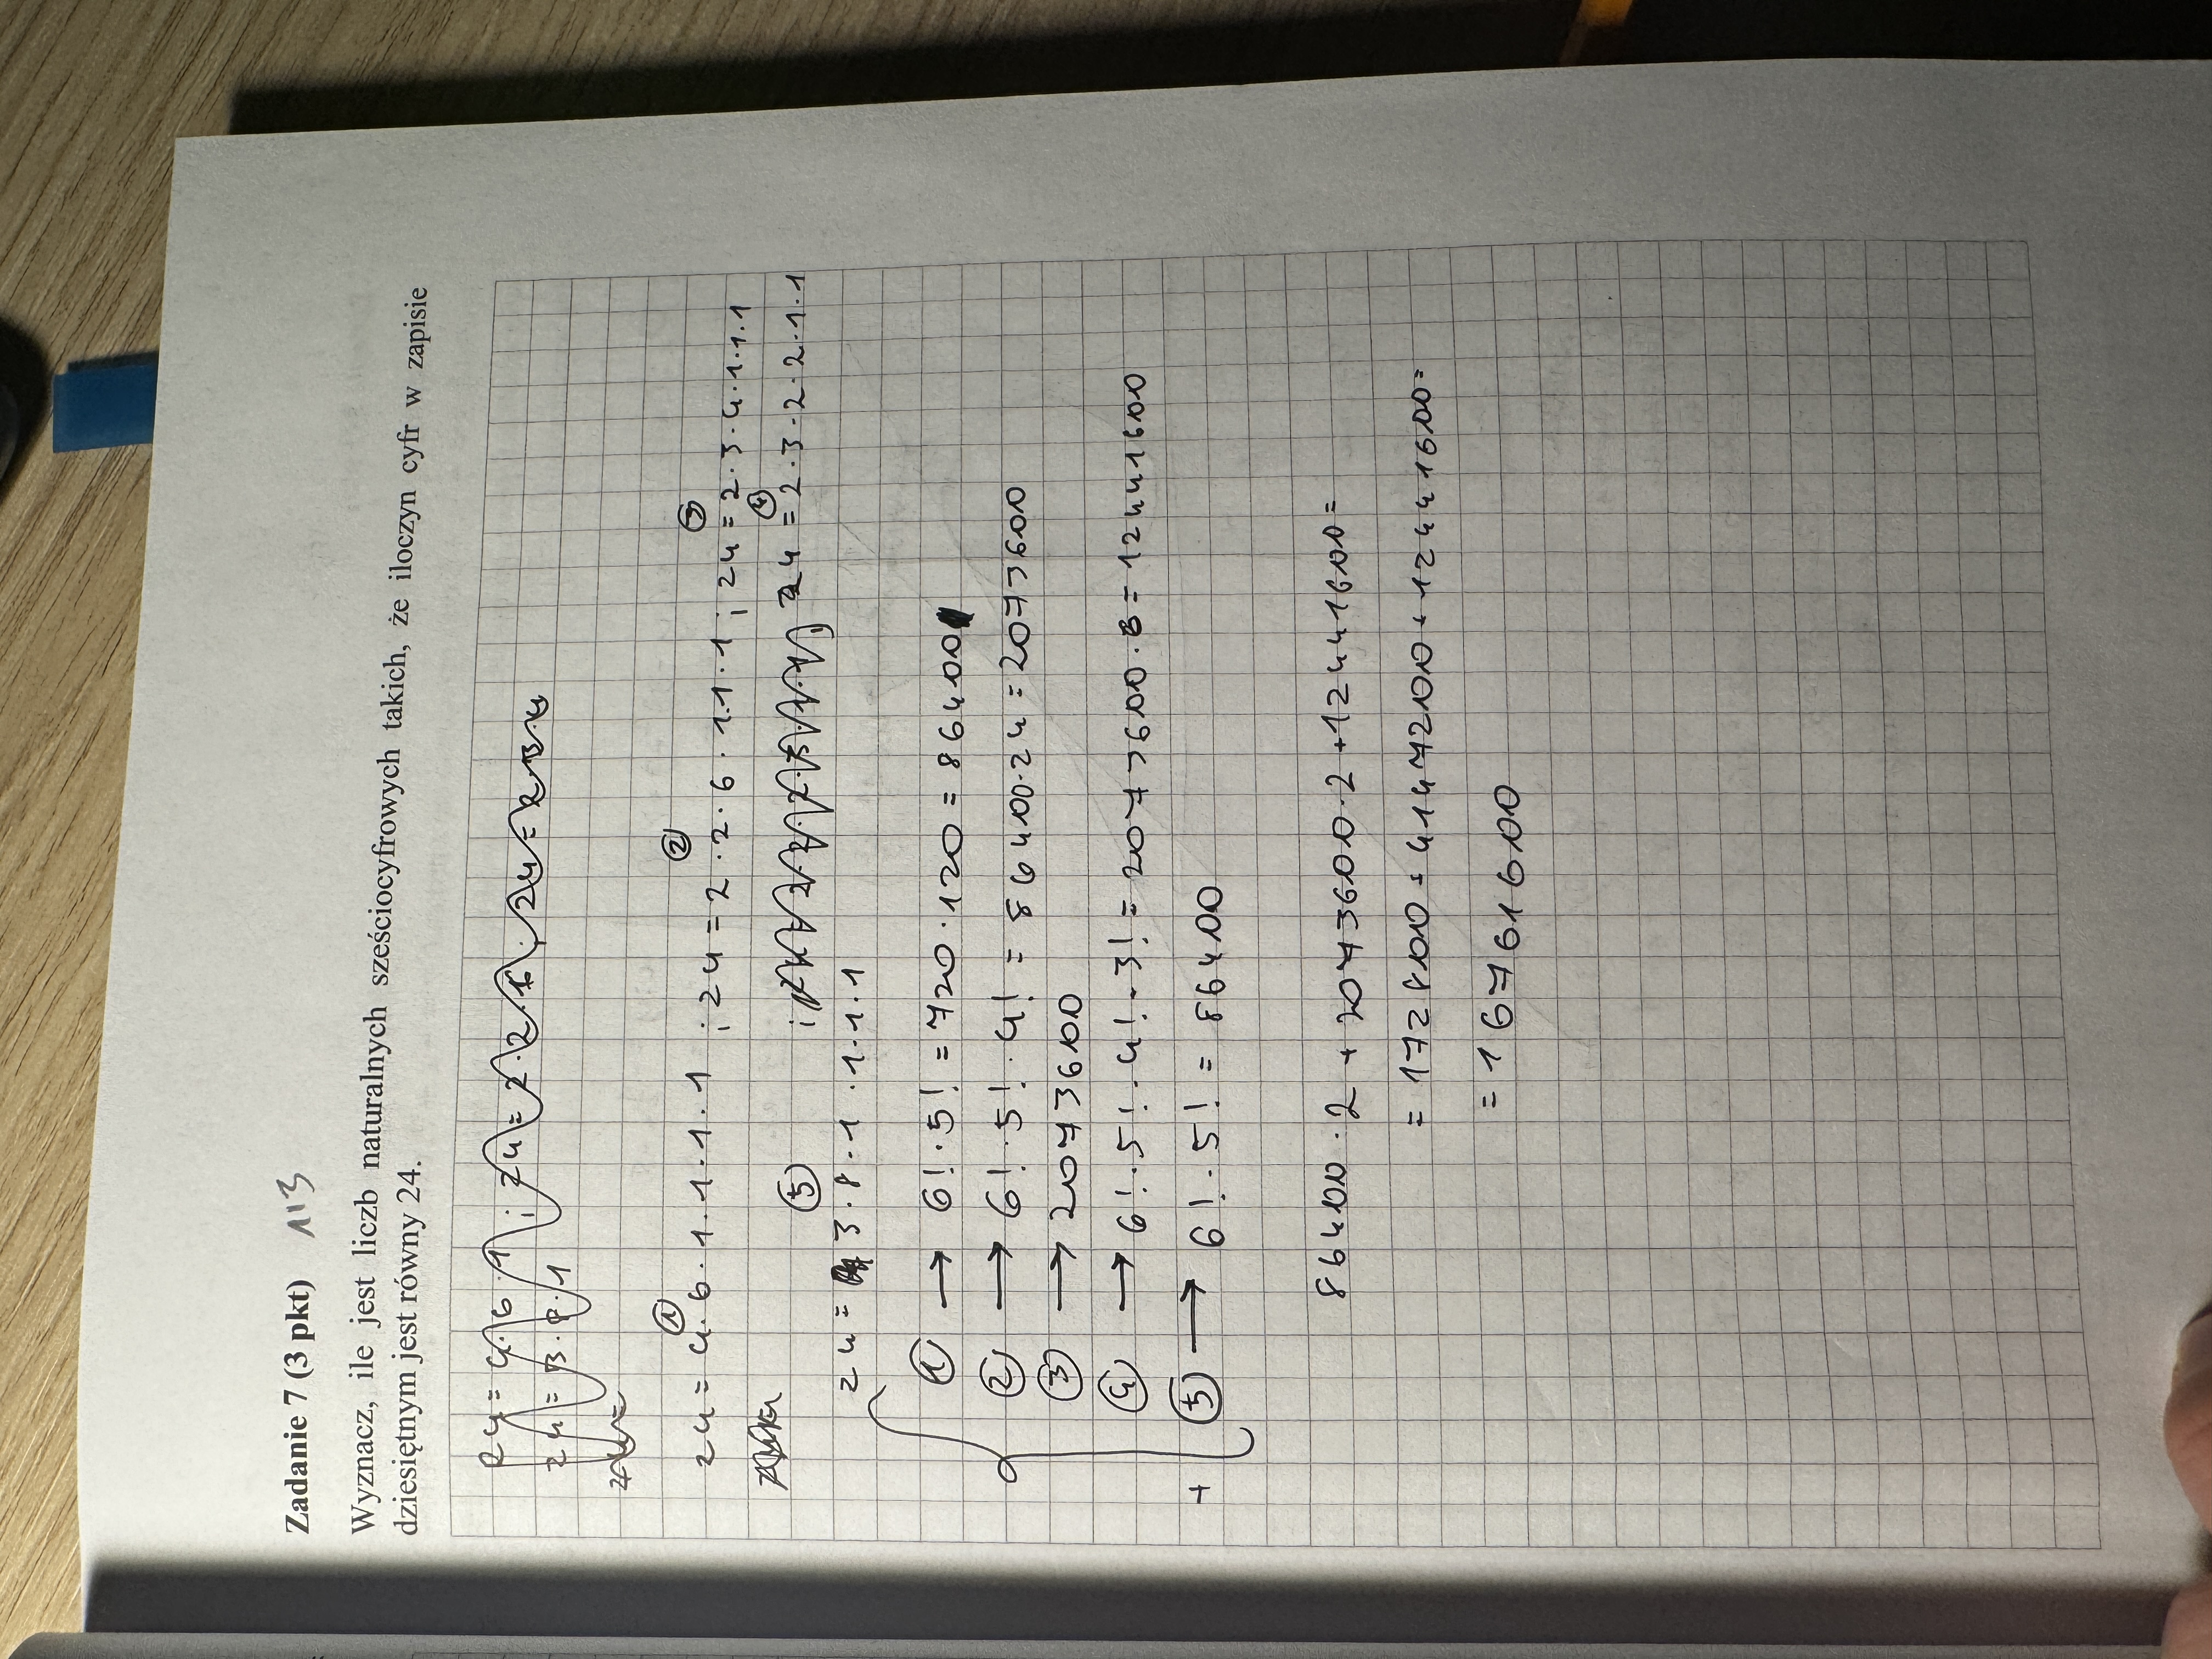 Zadanie 7 (3 pkt) 1/3
Wyznacz, ile jest liczb naturalnych sześciocyfrowych takich, że iloczyn cyfr w zapisie
dziesiętnym jest równy 24.
24 = 4·6·1 ; 24 = 2·2·6 ; 24 = 2·3·4
24 = 3·8·1
24 =
24 = 4·6·1·1·1·1 ① ; 24 = 2·2·6·1·1·1 ② ; 24 = 2·3·4·1·1·1 ③
24 = 2·3·2·2·1·1 ④
24 = 3·8·1·1·1·1 ⑤
① → 6!·5! = 720·120 = 86400
② → 6!·5!·4! = 86400·24 = 2073600
③ → 2073600
④ → 6!·5!·4!·3! = 2073600·6 = 12441600
+ ⑤ → 6!·5! = 86400
86400·2 + 2073600·2 + 12441600 =
= 172800 + 4147200 + 12441600 =
= 16761600